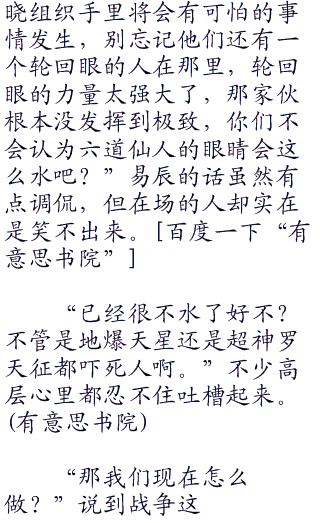 晓组织手里将会有可怕的事
情发生，别忘记他们还有一
个轮回眼的人在那里，轮回
眼的力量太强大了，那家伙
根本没发挥到极致，你们不
会认为六道仙人的眼睛会这
么水吧？”易辰的话虽然有
点调侃，但在场的人却实在
是笑不出来。[百度一下“有
意思书院”]
“已经很不水了好不？
不管是地爆天星还是超神罗
天征都吓死人啊。”不少高
层心里都忍不住吐槽起来。
(有意思书院)
“那我们现在怎么
做？”说到战争这